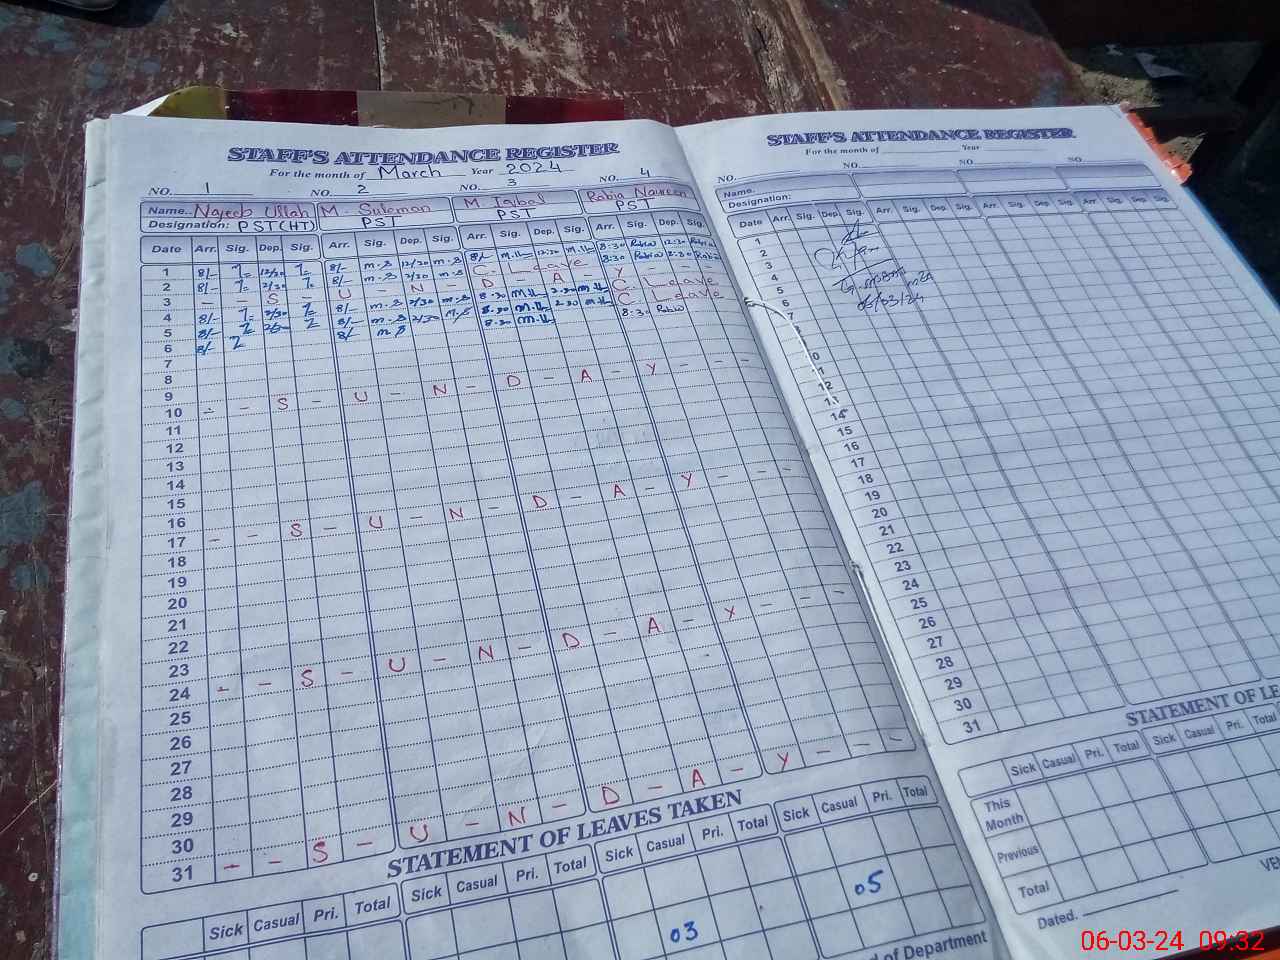 STAFF'S ATTENDANCE REGISTER
For the month of March Year 2024
NO. 1 NO. 2 NO. 3 NO. 4
Name.. Najeeb Ullah M. Suleman M. Iqbal Rabia Naureen
Designation: PST(HT) PST PST PST
Date Arr. Sig. Dep. Sig. Arr. Sig. Dep. Sig. Arr. Sig. Dep. Sig. Arr. Sig. Dep. Sig.
1 8/- 12/30 8/- m.s 12/30 m.s 8/- 12:30 8:30 Rabia 12:30 Rabia
2 8/- 2/30 8/- m.s 2/30 m.s C. Leave 8:30 Rabia 2:30 Rabia
3 - - S - U - N - D - A - Y - - -
4 8/- 2/30 8/- m.s 2/30 m.s 8.30 2.30 C. Leave
5 8/- 2/30 8/- m.s 2/30 m.s 8.30 2.30 C. Leave
6 8/- 8/- m.s 8.30 8:30 Rabia
7
8
9
10 - - S - U - N - D - A - Y - - -
11
12
13
14
15
16
17 - - S - U - N - D - A - Y - - -
18
19
20
21
22
23
24 - - S - U - N - D - A - Y - - -
25
26
27
28
29
30
31 - - S - U - N - D - A - Y - - -
STATEMENT OF LEAVES TAKEN
Sick Casual Pri. Total Sick Casual Pri. Total Sick Casual Pri. Total Sick Casual Pri. Total
03 05
d of Department
STAFF'S ATTENDANCE REGISTER
For the month of Year
NO. NO. NO. NO
Name.
Designation:
Date Arr. Sig. Dep. Sig. Arr. Sig. Dep. Sig. Arr. Sig. Dep. Sig. Arr. Sig. Dep. Sig.
1
2
3
4
5
6
7
8
0
11
12
14
15
16
17
18
19
20
21
22
23
24
25
26
27
28
29
30
31
06/03/24
STATEMENT OF LE
Sick Casual Pri. Total Sick Casual Pri. Total
This Month
Previous
Total
Dated.
VE
06-03-24 09:32